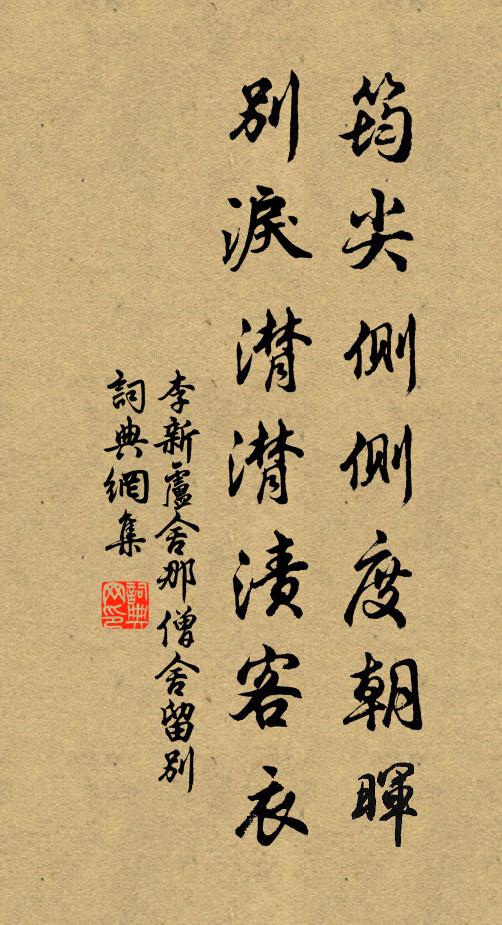 筠尖側側度朝暉
別淚潸潸漬客衣
李新盧舍那僧舍留別
詞典網集
詞典
网印